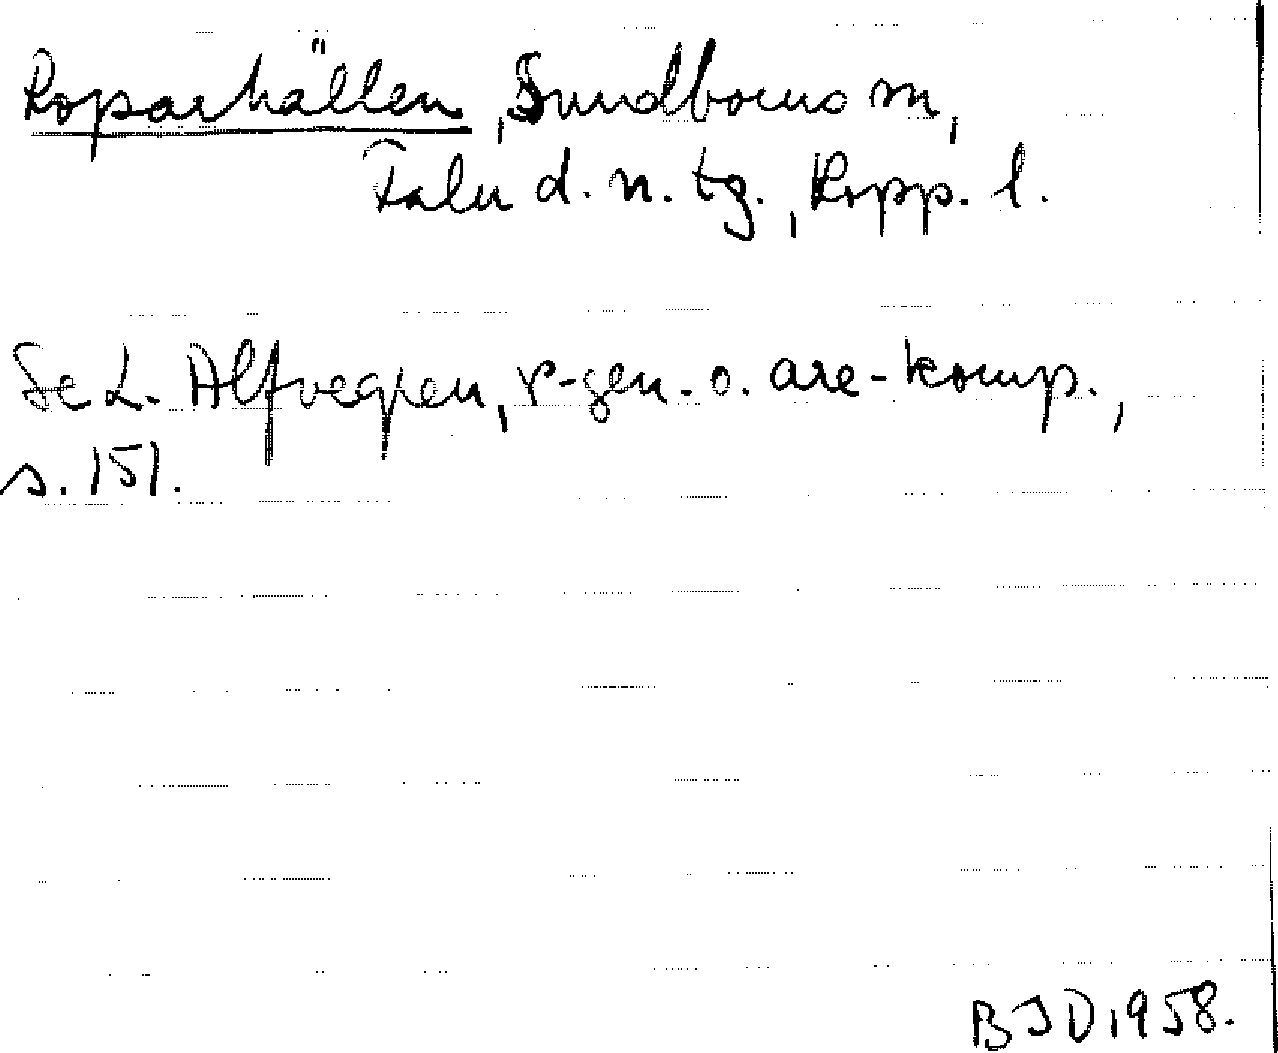 Roparhällen, Sundborns sn,
Falu d. n. tg., Kopp. l.
Se L. Alfvegren, r-gen. o. are-komp.,
s. 151.
BJD 1958.